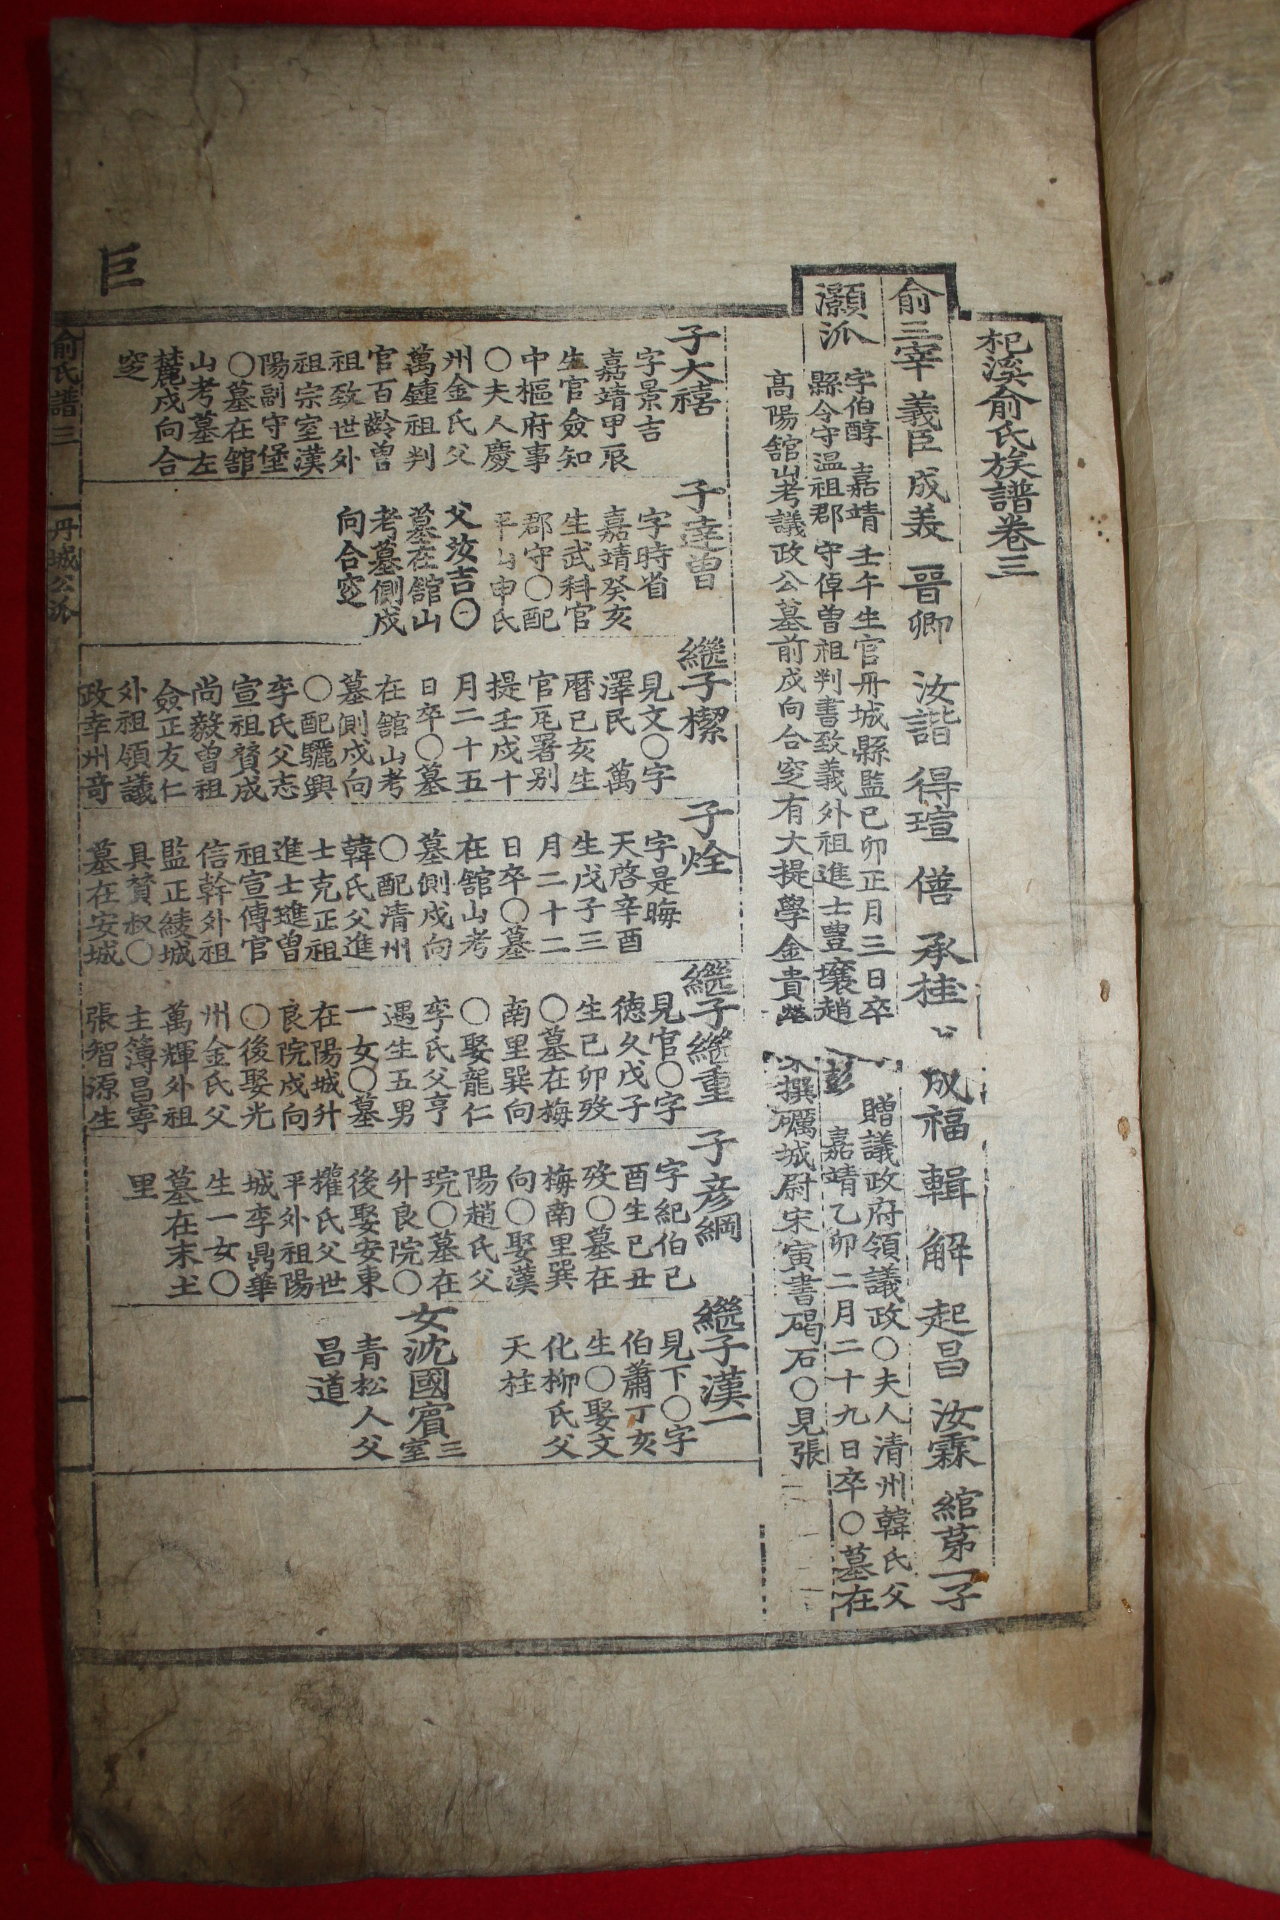 杞溪俞氏族譜卷三
俞三宰 義臣 成美 晋卿 汝諧 得瑄 僐 承桂 成福 輯 解 起昌 汝霖 綰第一子
灝派
字伯醇 嘉靖壬午生官丹城縣監己卯正月三日卒
贈議政府領議政〇夫人清州韓氏父
縣令守温祖郡守倬曽祖判書致義外祖進士豊壤趙彭
嘉靖乙卯二月二十九日卒〇墓在
高陽舘山考議政公墓前戍向合窆有大提學金貴榮
撰礪城尉宋寅書碣石〇見張
子大禧
字景吉
嘉靖甲辰
生官僉知
中樞府事
〇夫人慶
州金氏父
萬鍾祖判
官百齡曽
祖致世外
祖宗室漢
陽副守堡
〇墓在舘
山考墓左
麓戍向合
窆
子達曽
字時省
嘉靖癸亥
生武科官
郡守〇配
平山申氏
父汝吉〇
墓在舘山
考墓側戍
向合窆
繼子㓗
見文〇字
澤民 萬
曆己亥生
官瓦署别
提壬戍十
月二十五
日卒〇墓
在舘山考
墓側戍向
〇配驪興
李氏父志
宣祖贊成
尚毅曽祖
僉正友仁
外祖領議
政幸州奇
子烇
字是晦
天啓辛酉
生戊子三
月二十二
日卒〇墓
在舘山考
墓側戍向
〇配清州
韓氏父進
士克正祖
進士璡曽
祖宣傳官
信幹外祖
監正綾城
具賛叔〇
墓在安城
繼子繼重
見官〇字
徳久戊子
生己卯歿
〇墓在梅
南里巽向
〇娶龍仁
李氏父亨
遇生五男
一女〇墓
在陽城升
良院戍向
〇後娶光
州金氏父
萬輝外祖
主簿昌寧
張智源生
子彦綱
字紀伯己
酉生己丑
歿〇墓在
梅南里巽
向〇娶漢
陽趙氏父
琓〇墓在
升良院〇
後娶安東
權氏父世
平外祖陽
城李鼎華
生一女〇
墓在末土
里
繼子漢一
見下〇字
伯蕭丁亥
生〇娶文
化柳氏父
天柱
女沈國賓三室
青松人父
昌道
俞氏譜三 丹城公派 一
巨